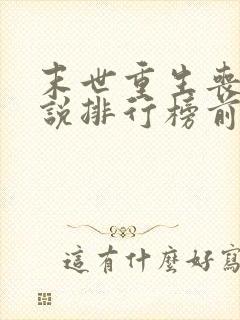 末世重生喪
說排行榜前
這有什麼好寫